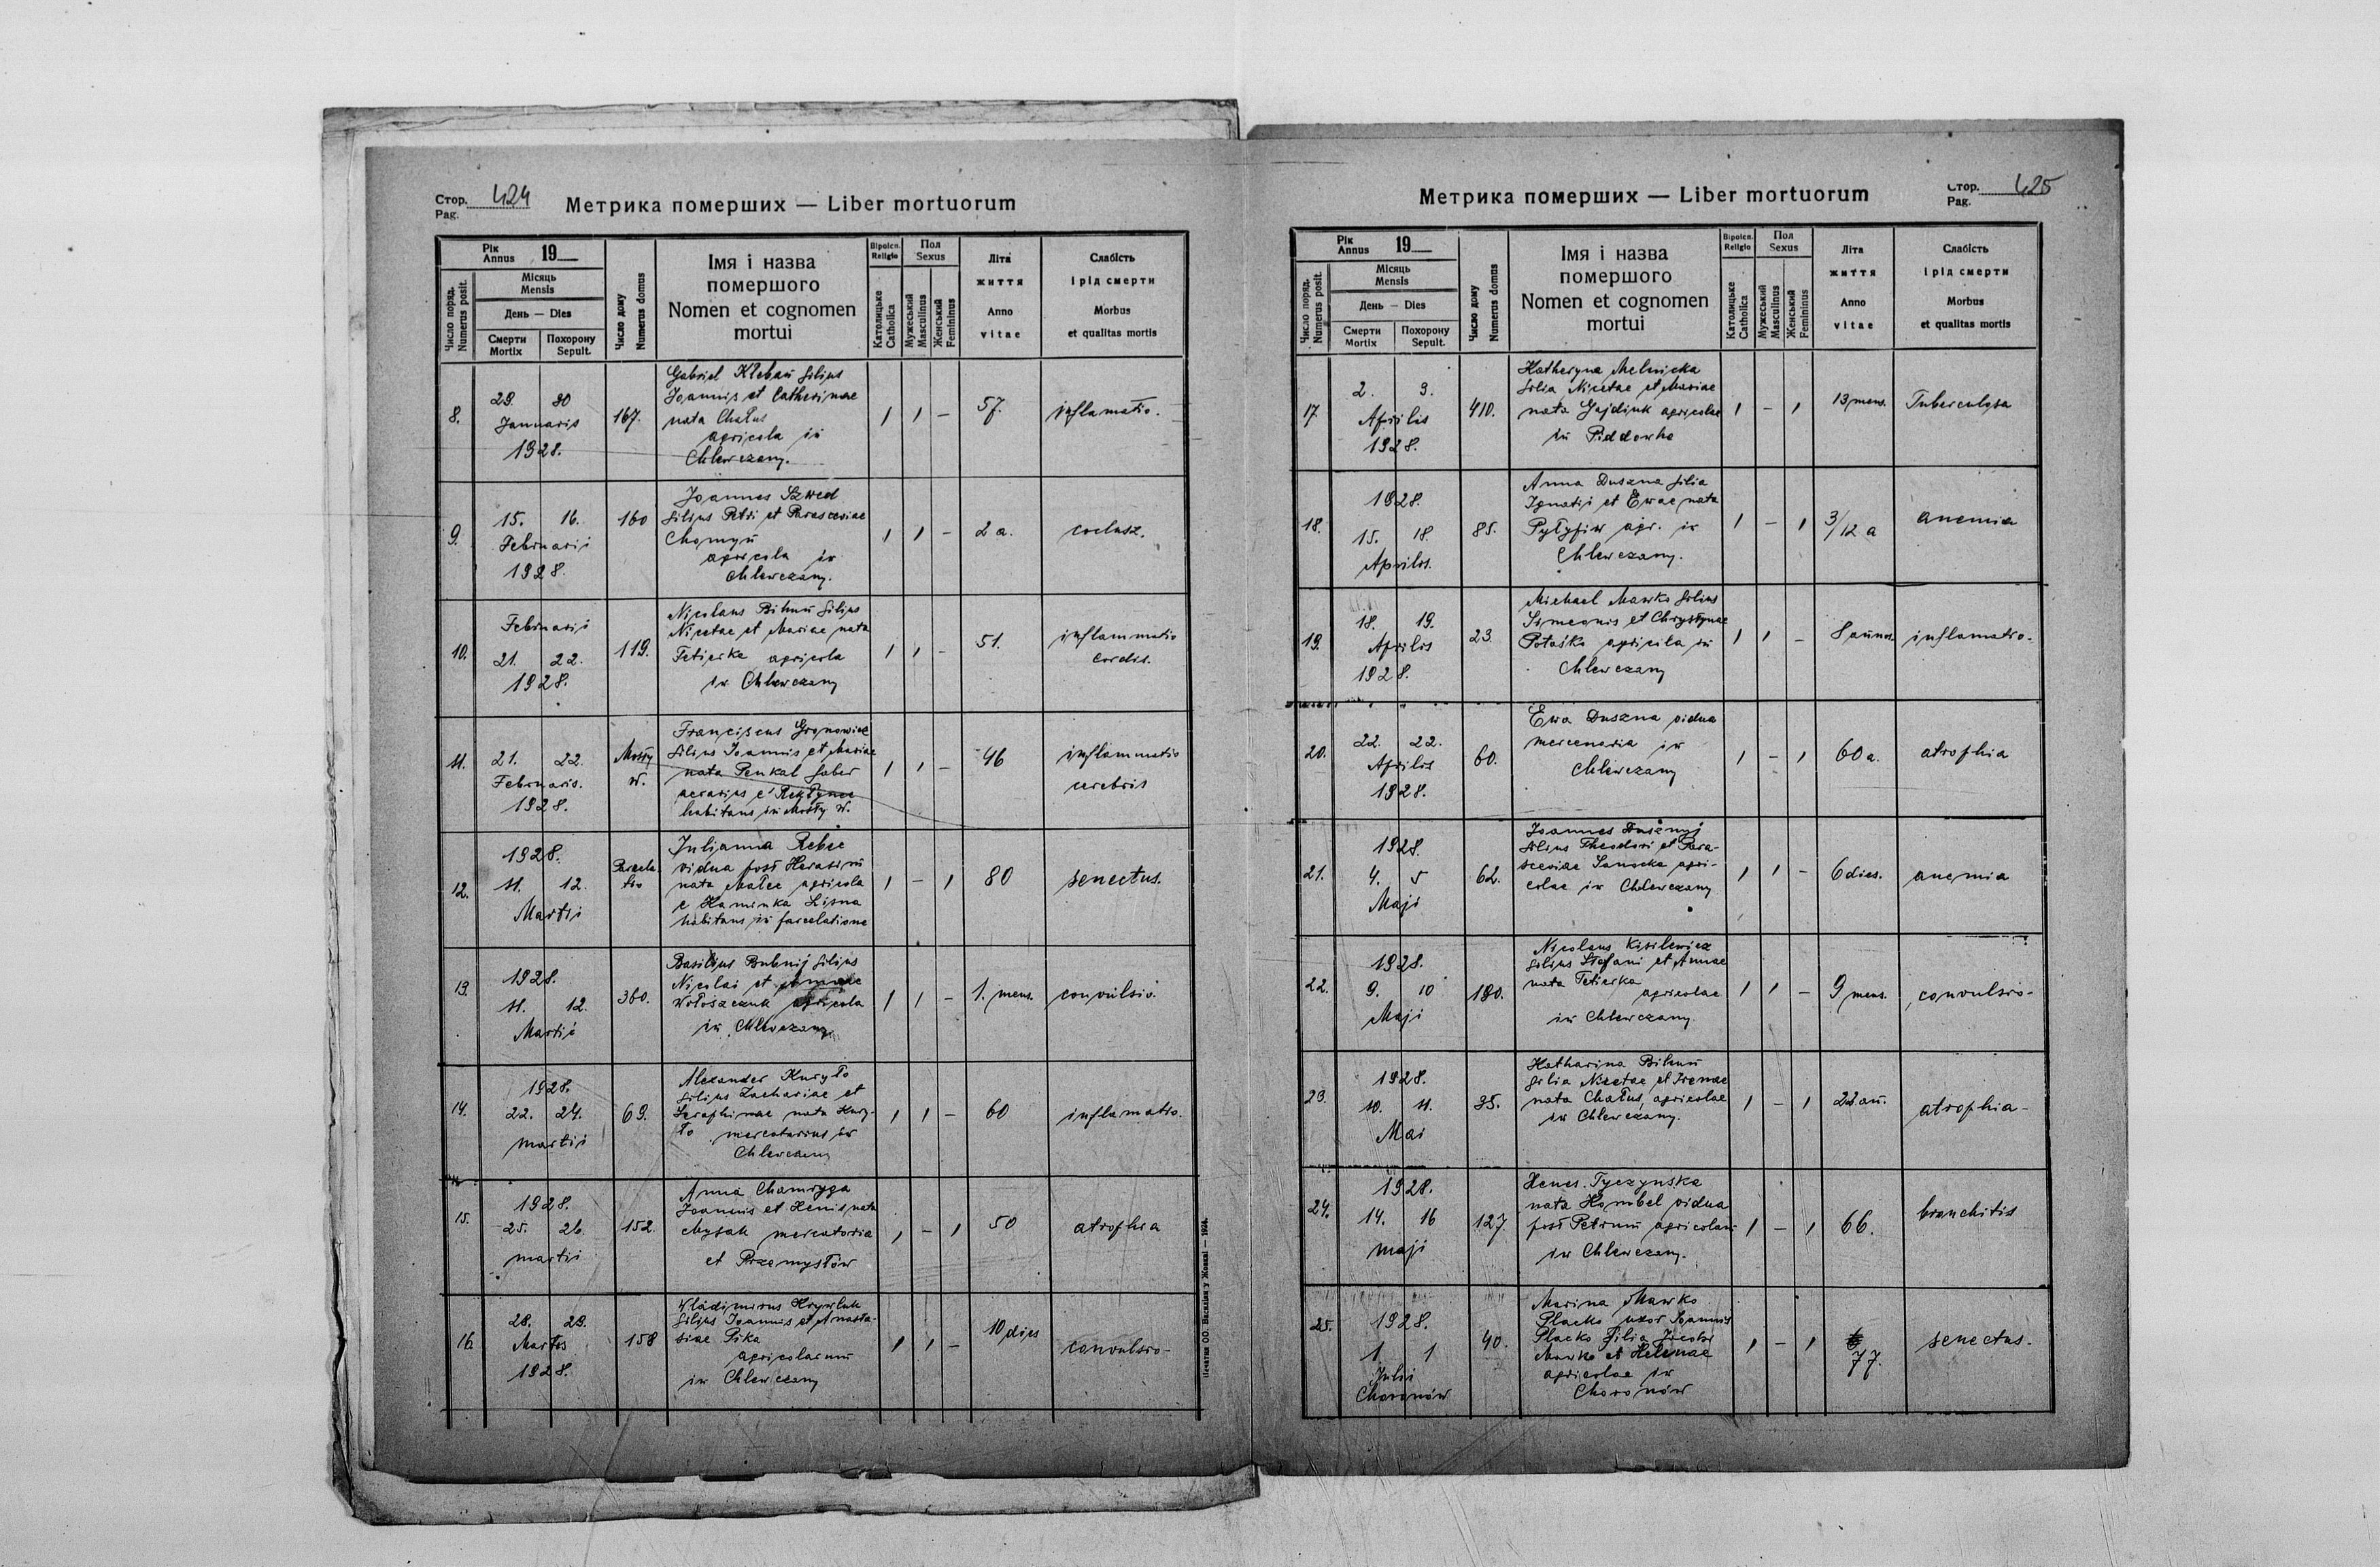 Стор. 424
Pag.
Метрика померших — Liber mortuorum
Рік
Annus 19
Місяць
Mensis
День — Dies
Смерти
Mortix
Похорону
Sepult.
Число поряд.
Numerus posit.
Число дому
Numerus domus
Імя і назва
померш­ого
Nomen et cognomen
mortui
Віроісп.
Religio
Католицьке
Catholica
Пол
Sexus
Мужеський
Masculinus
Женський
Femininus
Літа
життя
Anno
vitae
Слабість
і рід смерти
Morbus
et qualitas mortis
8.
29. 30
Januaris
1928.
167.
Gabriel Kleban filius
Joannis et Catherinae
nata Chałus
agricola in
Chlewczany.
1 1 -
57.
inflamatio.
9.
15. 16.
Februarii
1928.
160
Joannes Szwed
filius Petri et Parasceviae
Chomyn
agricola in
Chlewczany.
1 1 -
2 a.
coclusz.
10.
Februarii
21. 22.
1928.
119.
Nicolaus Bihun filius
Nicetae et Mariae nata
Fetierka agricola
in Chlewczany
1 1 -
51.
inflammatio
cordis.
11.
21. 22.
Februaris.
1928.
Mosty
W.
Franciscus Gronowicz
filius Joannis et Mariae
nata Penkal faber
aerarius e
habitans in Mosty W.
1 1 -
46
inflammatio
cerebris
12.
1928.
11. 12.
Martii
Julianna Rebee
vidua post Herasim
nata Małec agricola
e Kaminka Lisna
habitans in parcelatione
1 - 1
80
senectus.
13.
1928.
11. 12.
Martii
360.
Basilius Bubnij filius
Nicolai et Annae
Wołoszczuk agricola
in Chlewczany
1 1 -
1. mens.
convulsio.
14.
1928.
22. 24.
martii
69.
Alexander Kuryło
filius Zachariae et
Seraphinae nata Kury-
ło mercatorius in
Chlewczany
1 1 -
60
inflamatio.
15.
1928.
25. 26.
martii
152.
Anna Chamryga
Joannis et Henis nata
Mysak mercatoria
et Przemysłów
1 - 1
50
atrophia
16.
28. 29.
Martos
1928.
158
Wladimirus Krywluk
filius Joannis et Anasta-
siae Pika
agricolarum
in Chlewczany
1 1 -
10 dies
convulsio-
Печатня ОО. Василіян у Жовкві — 1924.
Метрика померших — Liber mortuorum
Стор. 425
Pag.
Рік
Annus 19
Місяць
Mensis
День — Dies
Смерти
Mortix
Похорону
Sepult.
Число поряд.
Numerus posit.
Число дому
Numerus domus
Імя і назва
помершого
Nomen et cognomen
mortui
Віроісп.
Religio
Католицьке
Catholica
Пол
Sexus
Мужеський
Masculinus
Женський
Femininus
Літа
життя
Anno
vitae
Слабість
і рід смерти
Morbus
et qualitas mortis
17
2. 3.
Aprilis
1928.
410.
Katheryna Melnicka
filia Nicetae et Mariae
nata Gajdiuk agricolae
in Piddowha
1 - 1
13 mens.
Tuberculosa
18.
1928.
15. 18
Aprilis.
85.
Anna Duszna filia
Ignatii et Ewae nata
Pyłypiw agr. in
Chlewczany.
1 - 1
3/12 a
anemia
19.
18. 19.
Aprilis
1928.
23.
Michael Mawko filius
Simeonis et Chrystynae
Potaśko agricola in
Chlewczany
1 1 -
8 annos.
inflamatio.
20.
22. 22.
Aprilis
1928.
60.
Ewa Duszna vidua
mercenaria in
Chlewczany
1 - 1
60 a.
atrophia
21.
1928.
4. 5
Maji
62.
Joannes Dusznyj
filius Theodori et Para-
sceviae Sanocka agri-
colae in Chlewczany
1 1 -
6 dies.
anemia
22.
1928.
9. 10
Maji
190.
Nicolaus Kisilewicz
filius Stefani et Annae
nata Fetierka
agricolae
in Chlewczany
1 1 -
9 mens.
convulsio-
23.
1928.
10. 11.
Mai
35.
Katharina Bihun
filia Nicetae et Irenae
nata Chałus, agricolae
in Chlewczany.
1 - 1
22 an.
atrophia-
24.
1928.
14. 16
maji
127.
Henes. Tyczynska
nata Hombel vidua
post Petrum agricolam
in Chlewczany.
1 - 1
66.
branchitis
25.
1928.
1. 1
Julii
Choronów
40.
Marina Mawko
Placko uxor Joannis
Placko filia
Mawko et Helenae
agricolae in
Choronów
1 - 1
77.
senectus.